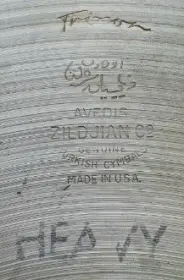 AVEDIS
ZILDJIAN CO
GENUINE
TURKISH CYMBALS
MADE IN U.S.A.
HEAVY